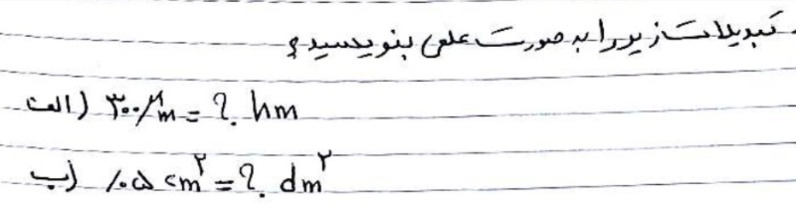 تبدیلات زیر را به صورت علمی بنویسید؟
الف) ۳۰۰ μm = ?. hm
ب) /۰۵ cm^۲ = ?. dm^۲